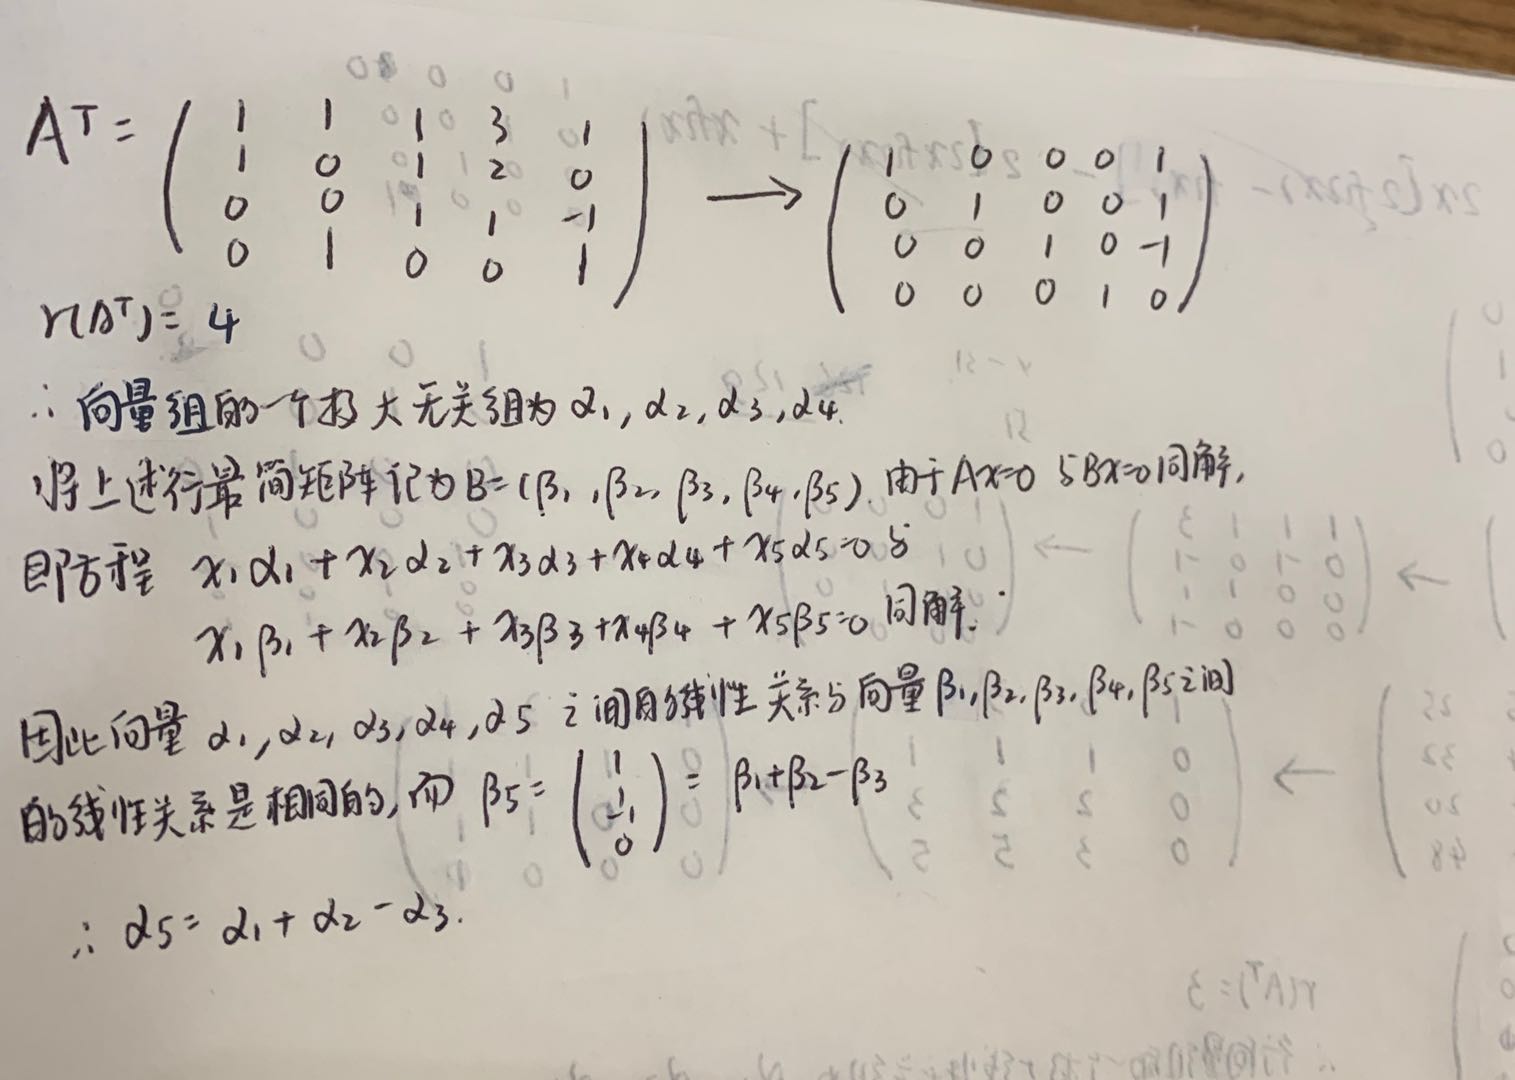 Aᵀ = ( 1 1 1 3 1 → ( 1 0 0 0 1
1 0 1 2 0 0 1 0 0 1
0 0 1 1 -1 0 0 1 0 -1
0 1 0 0 1 ) 0 0 0 1 0 )
r(Aᵀ) = 4
∴ 向量组的一个极大无关组为 α₁, α₂, α₃, α₄.
将上述行最简矩阵记为 B = (β₁, β₂, β₃, β₄, β₅). 由于 Ax=0 与 Bx=0 同解,
即方程 x₁α₁ + x₂α₂ + x₃α₃ + x₄α₄ + x₅α₅ = 0 与
x₁β₁ + x₂β₂ + x₃β₃ + x₄β₄ + x₅β₅ = 0 同解.
因此向量 α₁, α₂, α₃, α₄, α₅ 之间的线性关系与向量 β₁, β₂, β₃, β₄, β₅ 之间
的线性关系是相同的, 而 β₅ = ( 1 1 -1 0 ) = β₁ + β₂ - β₃
∴ α₅ = α₁ + α₂ - α₃.